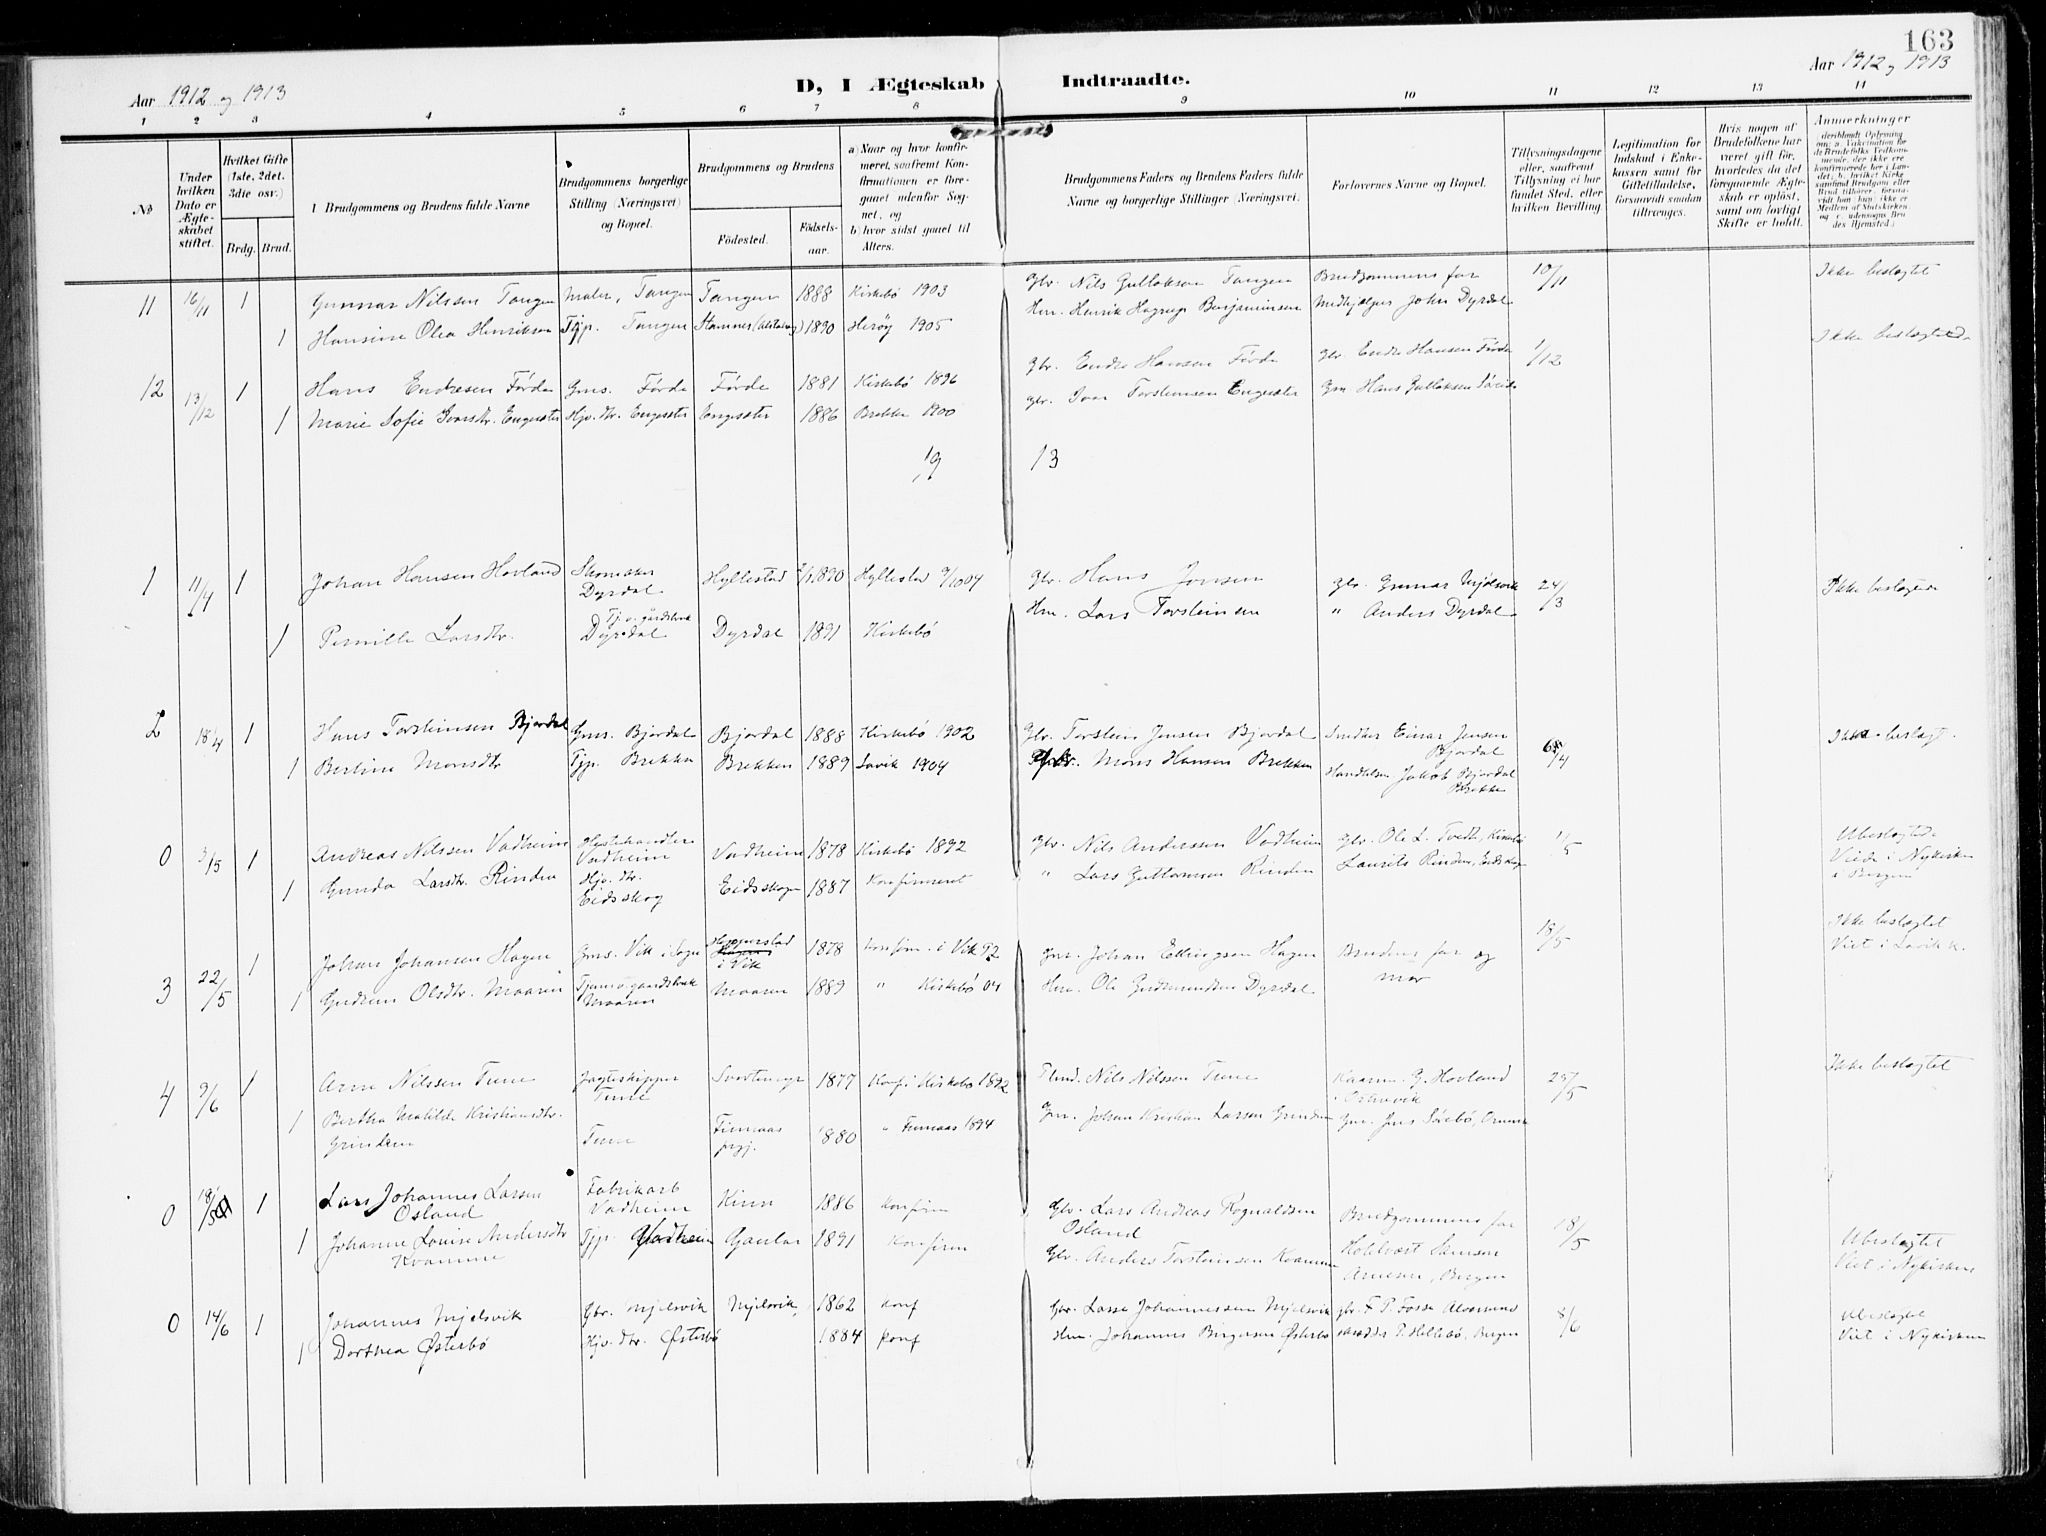 163
Aar 1912 og 1913
D, I Ægteskab Indtraadte.
Aar 1912 og 1913
1 2 3 4 5 6 7 8 9 10 11 12 13 14
No
Under hvilken Dato er Ægteskabet stiftet.
Hvilket Gifte (1ste, 2det, 3die osv.)
Brdg. Brud.
1 Brudgommens og Brudens fulde Navne
Brudgommens borgerlige Stilling (Næringsvei) og Bopæl.
Brudgommens og Brudens
Fødested. Fødselsaar.
a) Naar og hvor konfirmeret, saafremt Konfirmationen er foregaaet udenfor Sognet, og
b) hvor sidst gaaet til Alters.
Brudgommens Faders og Brudens Faders fulde Navne og borgerlige Stillinger (Næringsvei.
Forlovernes Navne og Bopæl.
Tillysningsdagene eller, saafremt Tillysning ei har fundet Sted, efter hvilken Bevilling.
Legitimation for Indskud i Enkekassen samt for Giftetilladelse, forsaavidt saadan tiltrænges.
Hvis nogen af Brudefolkene har været gift før, hvorledes da det foregaaende Ægteskab er opløst, samt om lovligt Skifte er holdt.
Anmerkninger
11 16/11 1 Gunnar Nilsen Tangen Maler, Tangen Tangen 1888 Kirkebø 1903 Gbr. Nils Gulloksen Tangen Brudgommens far 10/11 Ikke beslegtet
1 Hansine Olea Henriksen Tjp. Tangen Stamnes 1890 Herøy 1905 Hm. Henrik Hagrup Benjaminsen Medhjælper John Dyrdal
12 13/12 1 Hans Endresen Førde Gms. Førde Førde 1881 Kirkebø 1896 Gbr. Endre Hansen Førde Gbr. Endre Hansen Førde 1/12 Ikke beslegtede
1 Marie Sofie Ivarsdtr. Engesæter Hjv. dtr. Engesæter Engesæter 1886 Brekke 1900 Gbr. Ivar Torsteinsen Engesæter Gm Hans Gulloksen
19 13
1 11/4 1 Johan Hansen Hovland Skomaker Dyrdal Hyllestad 1890 Hyllestad 04 Gbr. Hans Jonsen Gbr. Gunnar Mjølsvik 24/3 Ikke beslegtede
1 Pernille Larsdtr. Tj. v. gårdsbruk Dyrdal Dyrdal 1891 Kirkebø Hm. Lars Torsteinsen " Anders Dyrdal
2 18/4 1 Hans Torsteinsen Bjordal Gms. Bjordal Bjordal 1888 Kirkebø 1902 Gbr. Torstein Jensen Bjordal Snedker Einar Jensen Bjordal /4 Ikke beslegt.
1 Bertine Monsdtr Tjp. Brekke Brekken 1889 Lavik 1904 Gbr. Mons Hansen Brekken Handelsm Jakob Bjordal Brekke
0 3/5 1 Andreas Nilssen Vadheim Hestehandler Vadheim Vadheim 1878 Kirkebø 1892 Gbr. Nils Anderssen Vadheim Gbr. Ole L. Tvedt, Kirkebø 1/5 Ubeslegtede Viede i Nykirken i Bergen
1 Gunda Larsdtr. Rinden Hjv. dtr. Eidsskog Eidsskogen 1887 Konfirmeret " Lars Rinden Laurits Rinden, Eidskog
3 22/5 1 Johan Johansen Hagen Gms. Vik i Sogn Hopperstad i Vik 1878 Konfirm. i Vik 92 Gm. Johan Ellingsen Hagen Brudens far og mor 18/5 Ikke beslegtet Viet i Lavik k.
1 Gudrun Olsdtr. Maaren Tjener v. gaardsbruk Maaren Maaren 1889 " Kirkebø 04 Hm. Ole Gudmundsen Dyrdal
4 9/6 1 Arne Nilssen Tune Jagteskipper Tune Svartemyr 1877 Konf. i Kirkebø 1892 Nils Nilssen Tune Kaarm. G. Hovland i Ortnevik 25/5 Ikke beslegtet
1 Bertha Matilde Kristiansdtr. Grinden Tune Finnaas prgj. 1880 " Finnaas 1894 Gm. Johan Kristian Larsen Grinden Gm. Jens Sørebø
0 18/5 1 Lars Johannes Larsen Osland Fabrikarb Vadheim Kinn 1886 Konfirm Gbr. Lars Andreas Rognaldsen Osland Brudgommens far 18/5
1 Johanne Louise Andersdtr Kvamme Tjp. Vadheim Gaular 1891 Konfirm Gbr. Anders Torsteinsen Kvamme Hotelvært Samson Arnesen, Bergen Ubeslegtet Viet i Nykirken
0 14/6 1 Johannes Mjelsvik Gbr. Mjelsvik Mjelsvik, 1862 Konf Gbr. Lasse Johannessen Mjelsvik Gbr. F. P. Fosse Alversund 8/6 Ubeslegtet Viet i Nykirken
1 Dorthea Østerbø Hjv. dtr. Østerbø 1884 Konf Hm. Johannes Birgersen Østerbø P. Hellebø, Bergen